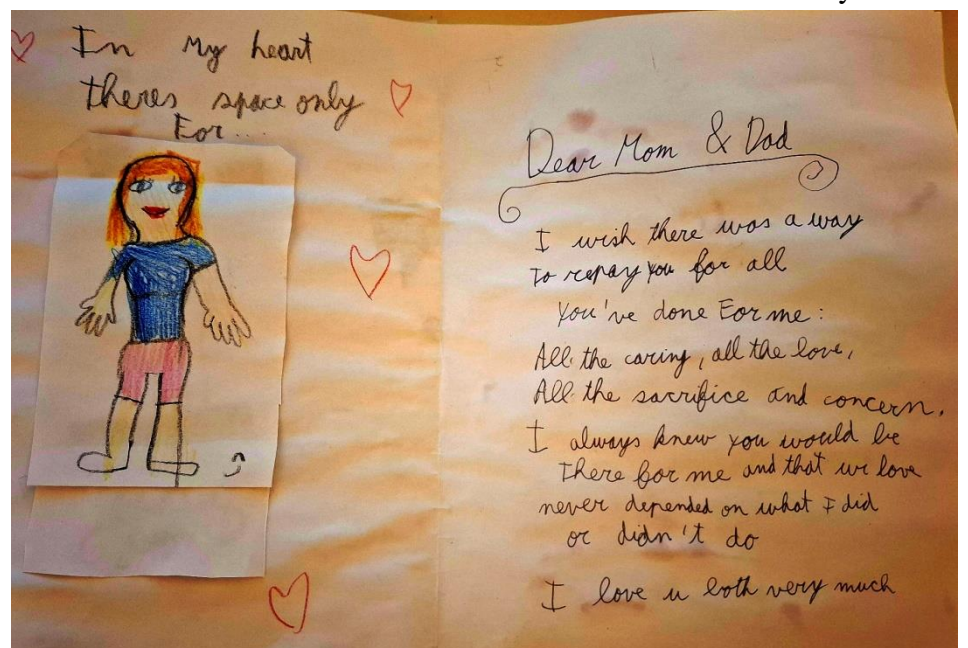 In My heart
theres space only
For....
Dear Mom & Dad
I wish there was a way
to repay you for all
you've done For me:
All the caring, all the love,
All the sacrifice and concern.
I always knew you would be
there for me and that ur love
never depended on what I did
or didn't do
I love u both very much